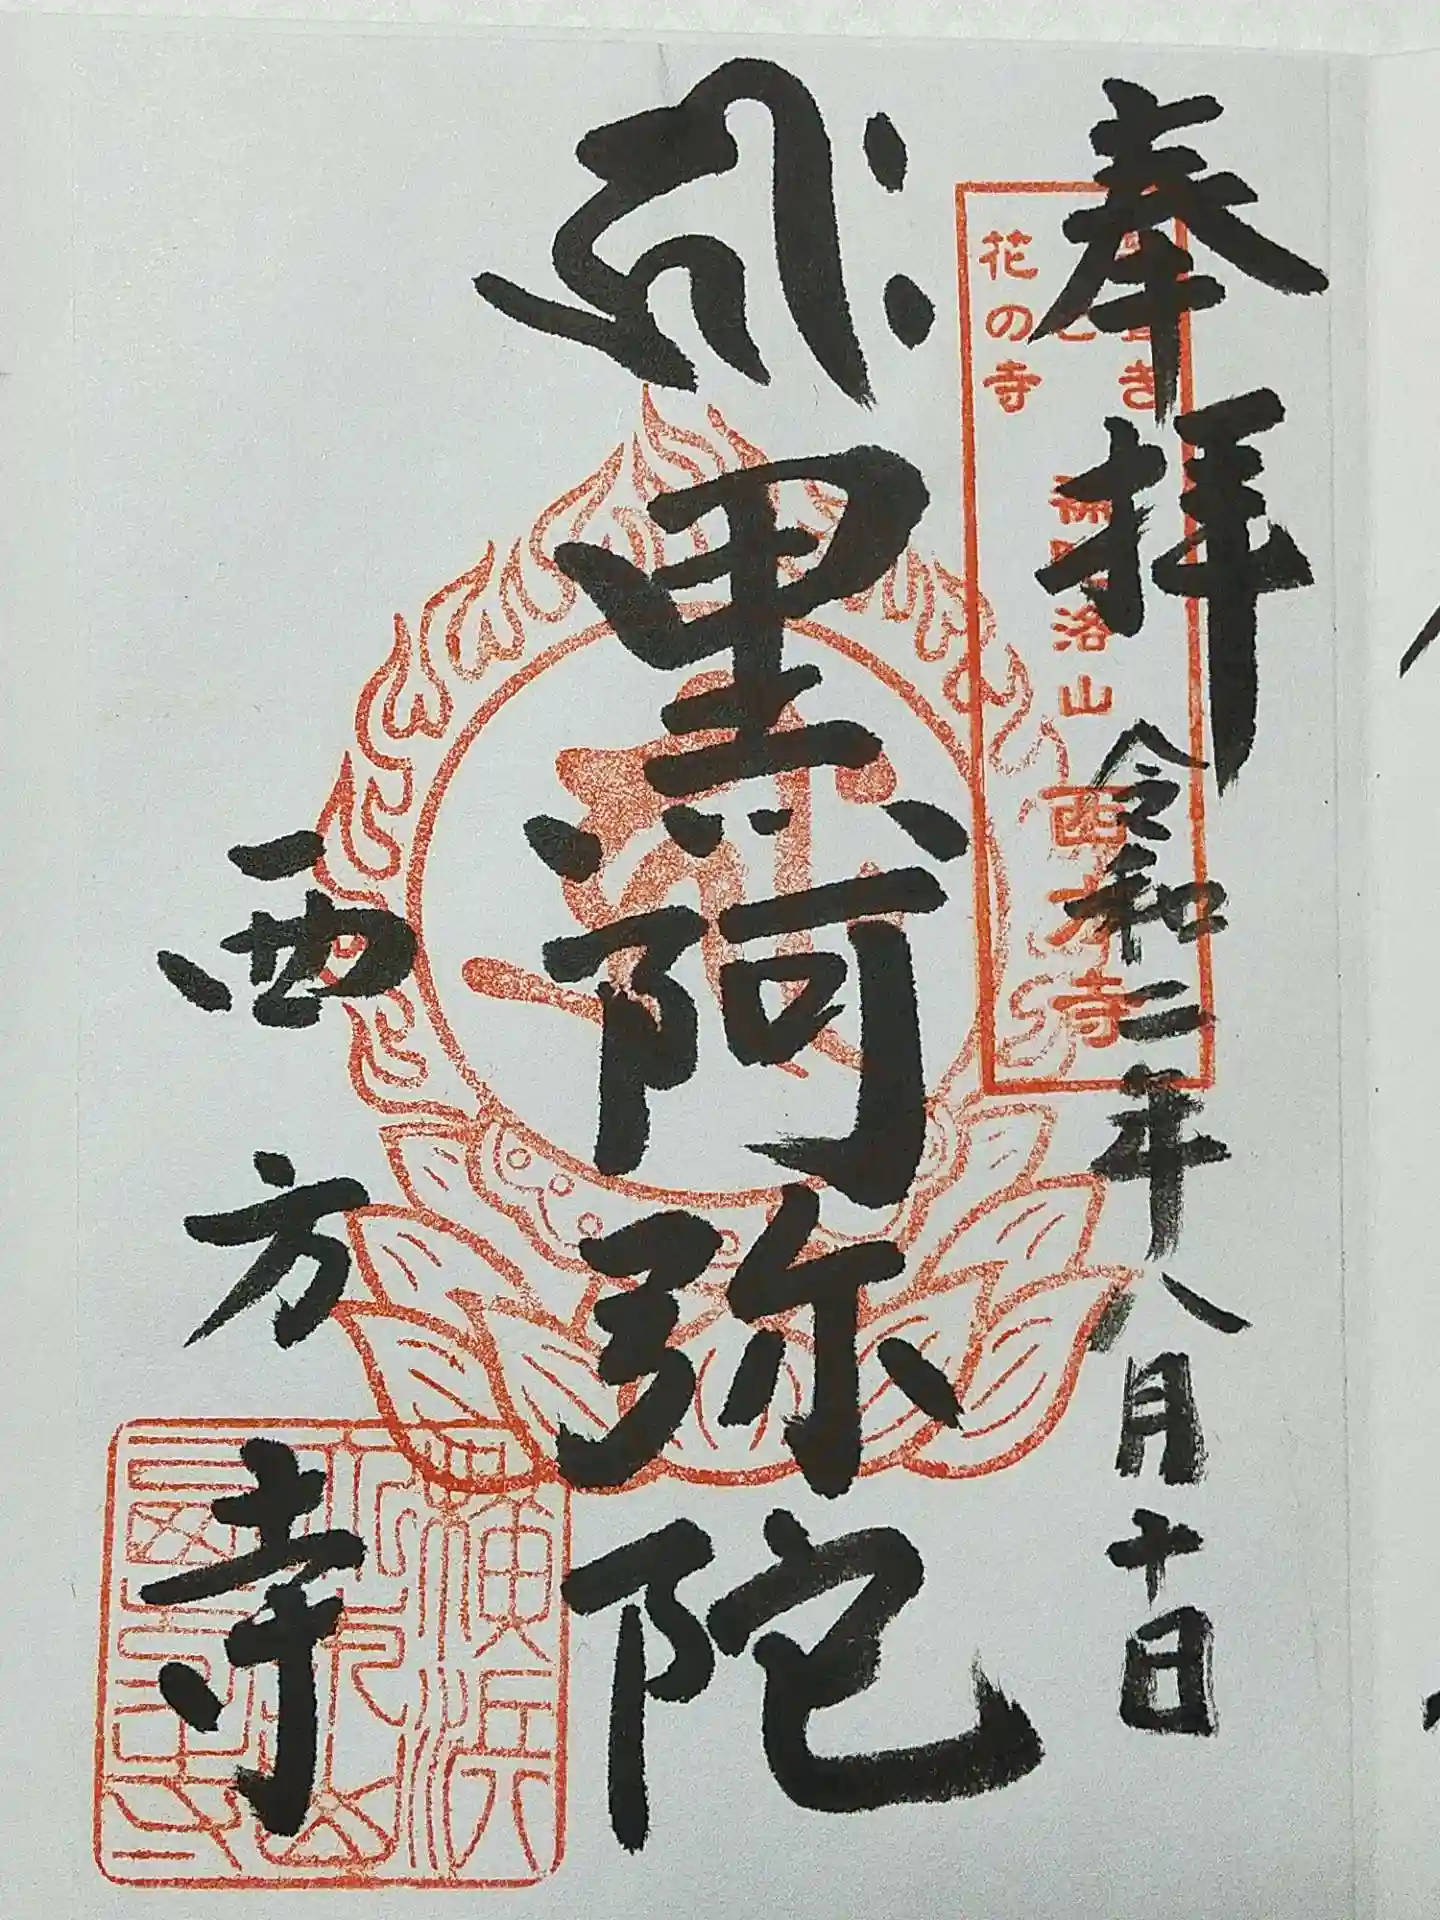 奉拝 令和二年八月十日
花の寺
補陀洛山 西方寺
𑖮𑖿𑖨𑖱𑖾 黒阿弥陀
西方寺